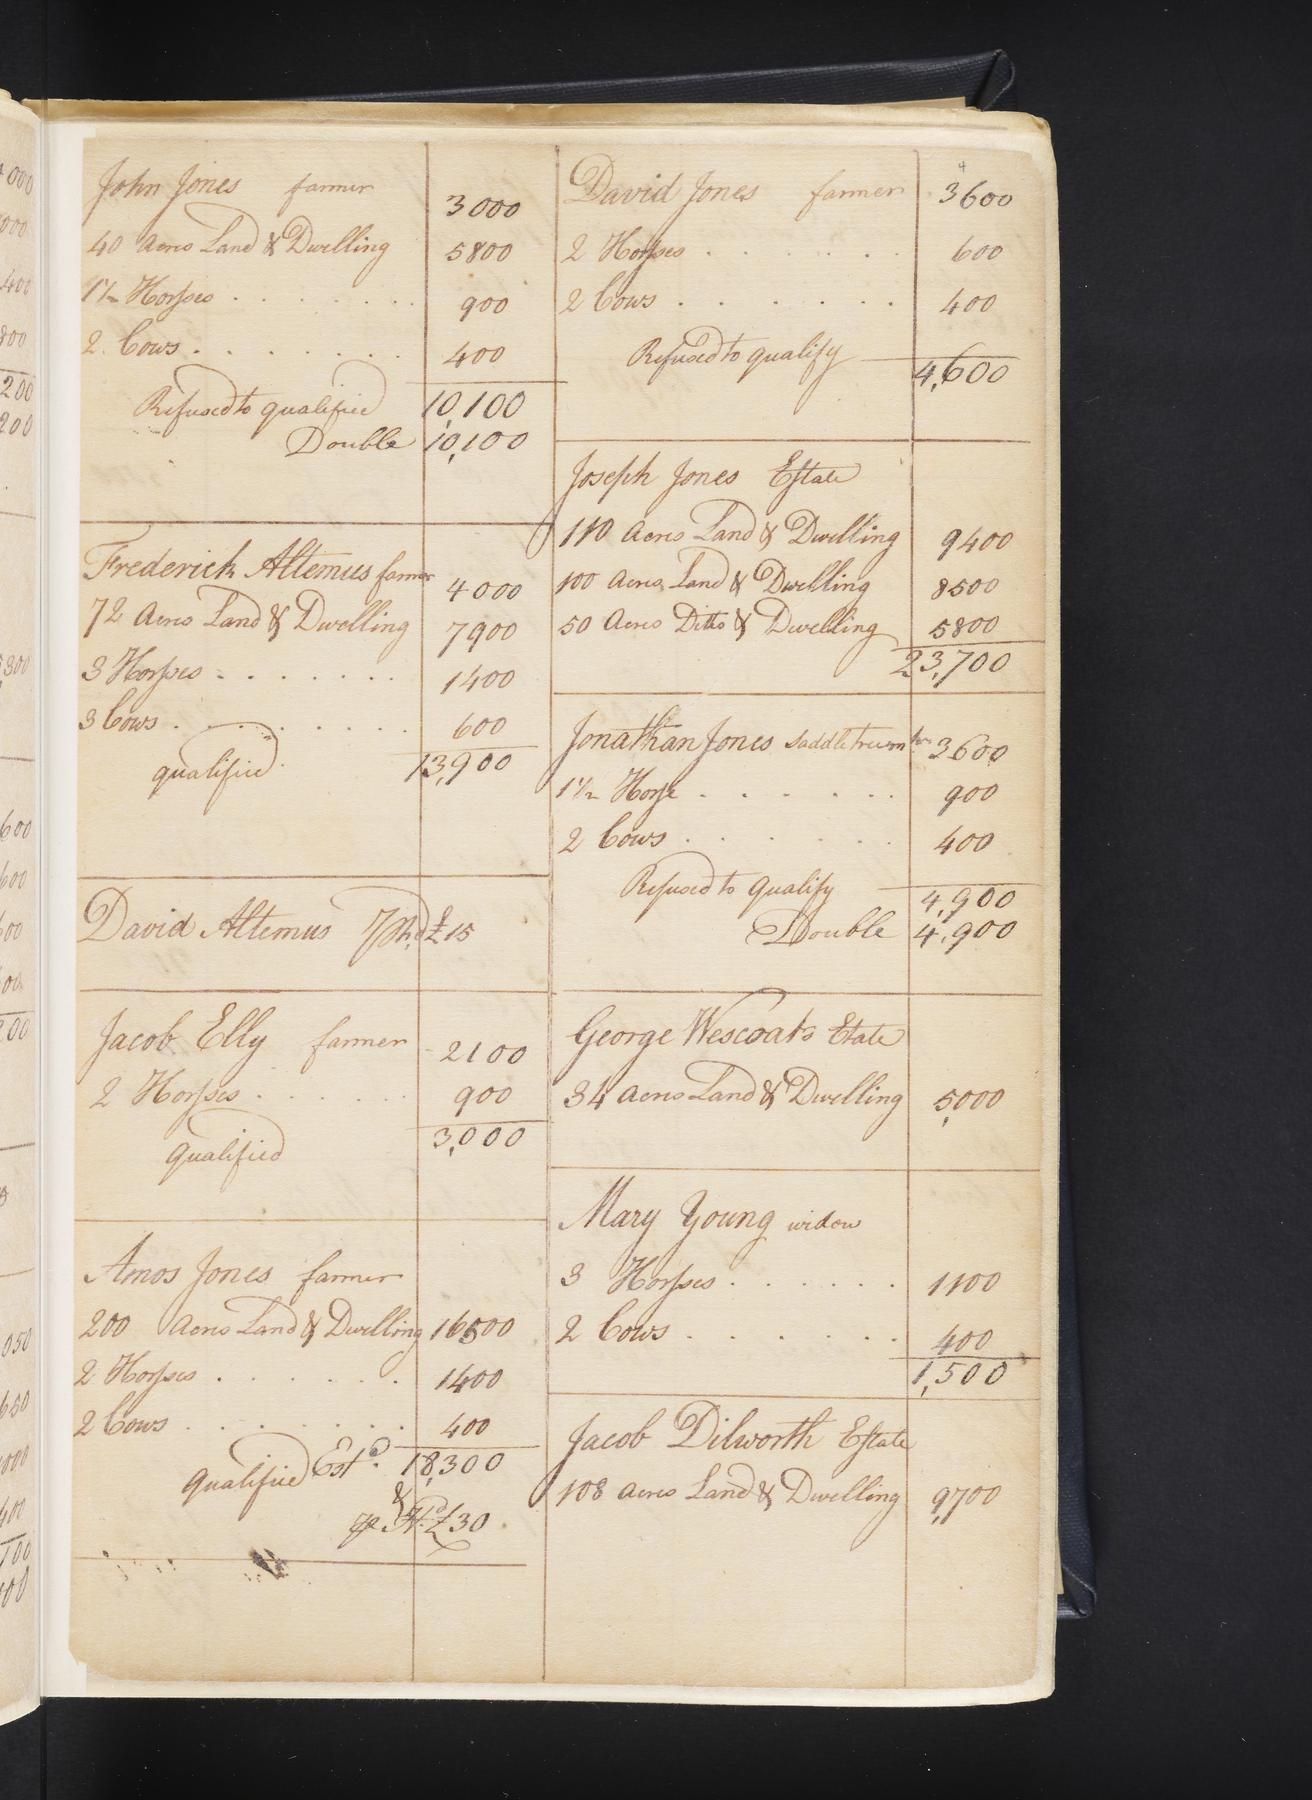 John Jones farmer 3000
40 Acres Land & Dwelling 5800
1½ Horses 900
2 Cows 400
Refused to qualified 10,100
Double 10,100
Frederick Altemus farmer 4000
72 Acres Land & Dwelling 7900
3 Horses 1400
3 Cows 600
qualified 13,900
David Altemus £15
Jacob Elly farmer 2100
2 Horses 900
qualified 3,000
Amos Jones farmer
200 Acres Land & Dwelling 16500
2 Horses 1400
2 Cows 400
qualified Est.d 18,300
& £30
David Jones farmer 3600
2 Horses 600
2 Cows 400
Refused to qualify 4,600
Joseph Jones Estate
110 Acres Land & Dwelling 9400
100 Acres Land & Dwelling 8500
50 Acres Ditto & Dwelling 5800
23,700
Jonathan Jones 3600
1½ Horse 900
2 Cows 400
Refused to qualify 4,900
Double 4,900
George Wescoats Etate
34 Acres Land & Dwelling 5,000
Mary Young widow
3 Horses 1100
2 Cows 400
1,500
Jacob Dilworth Estate
108 Acres Land & Dwelling 9,700